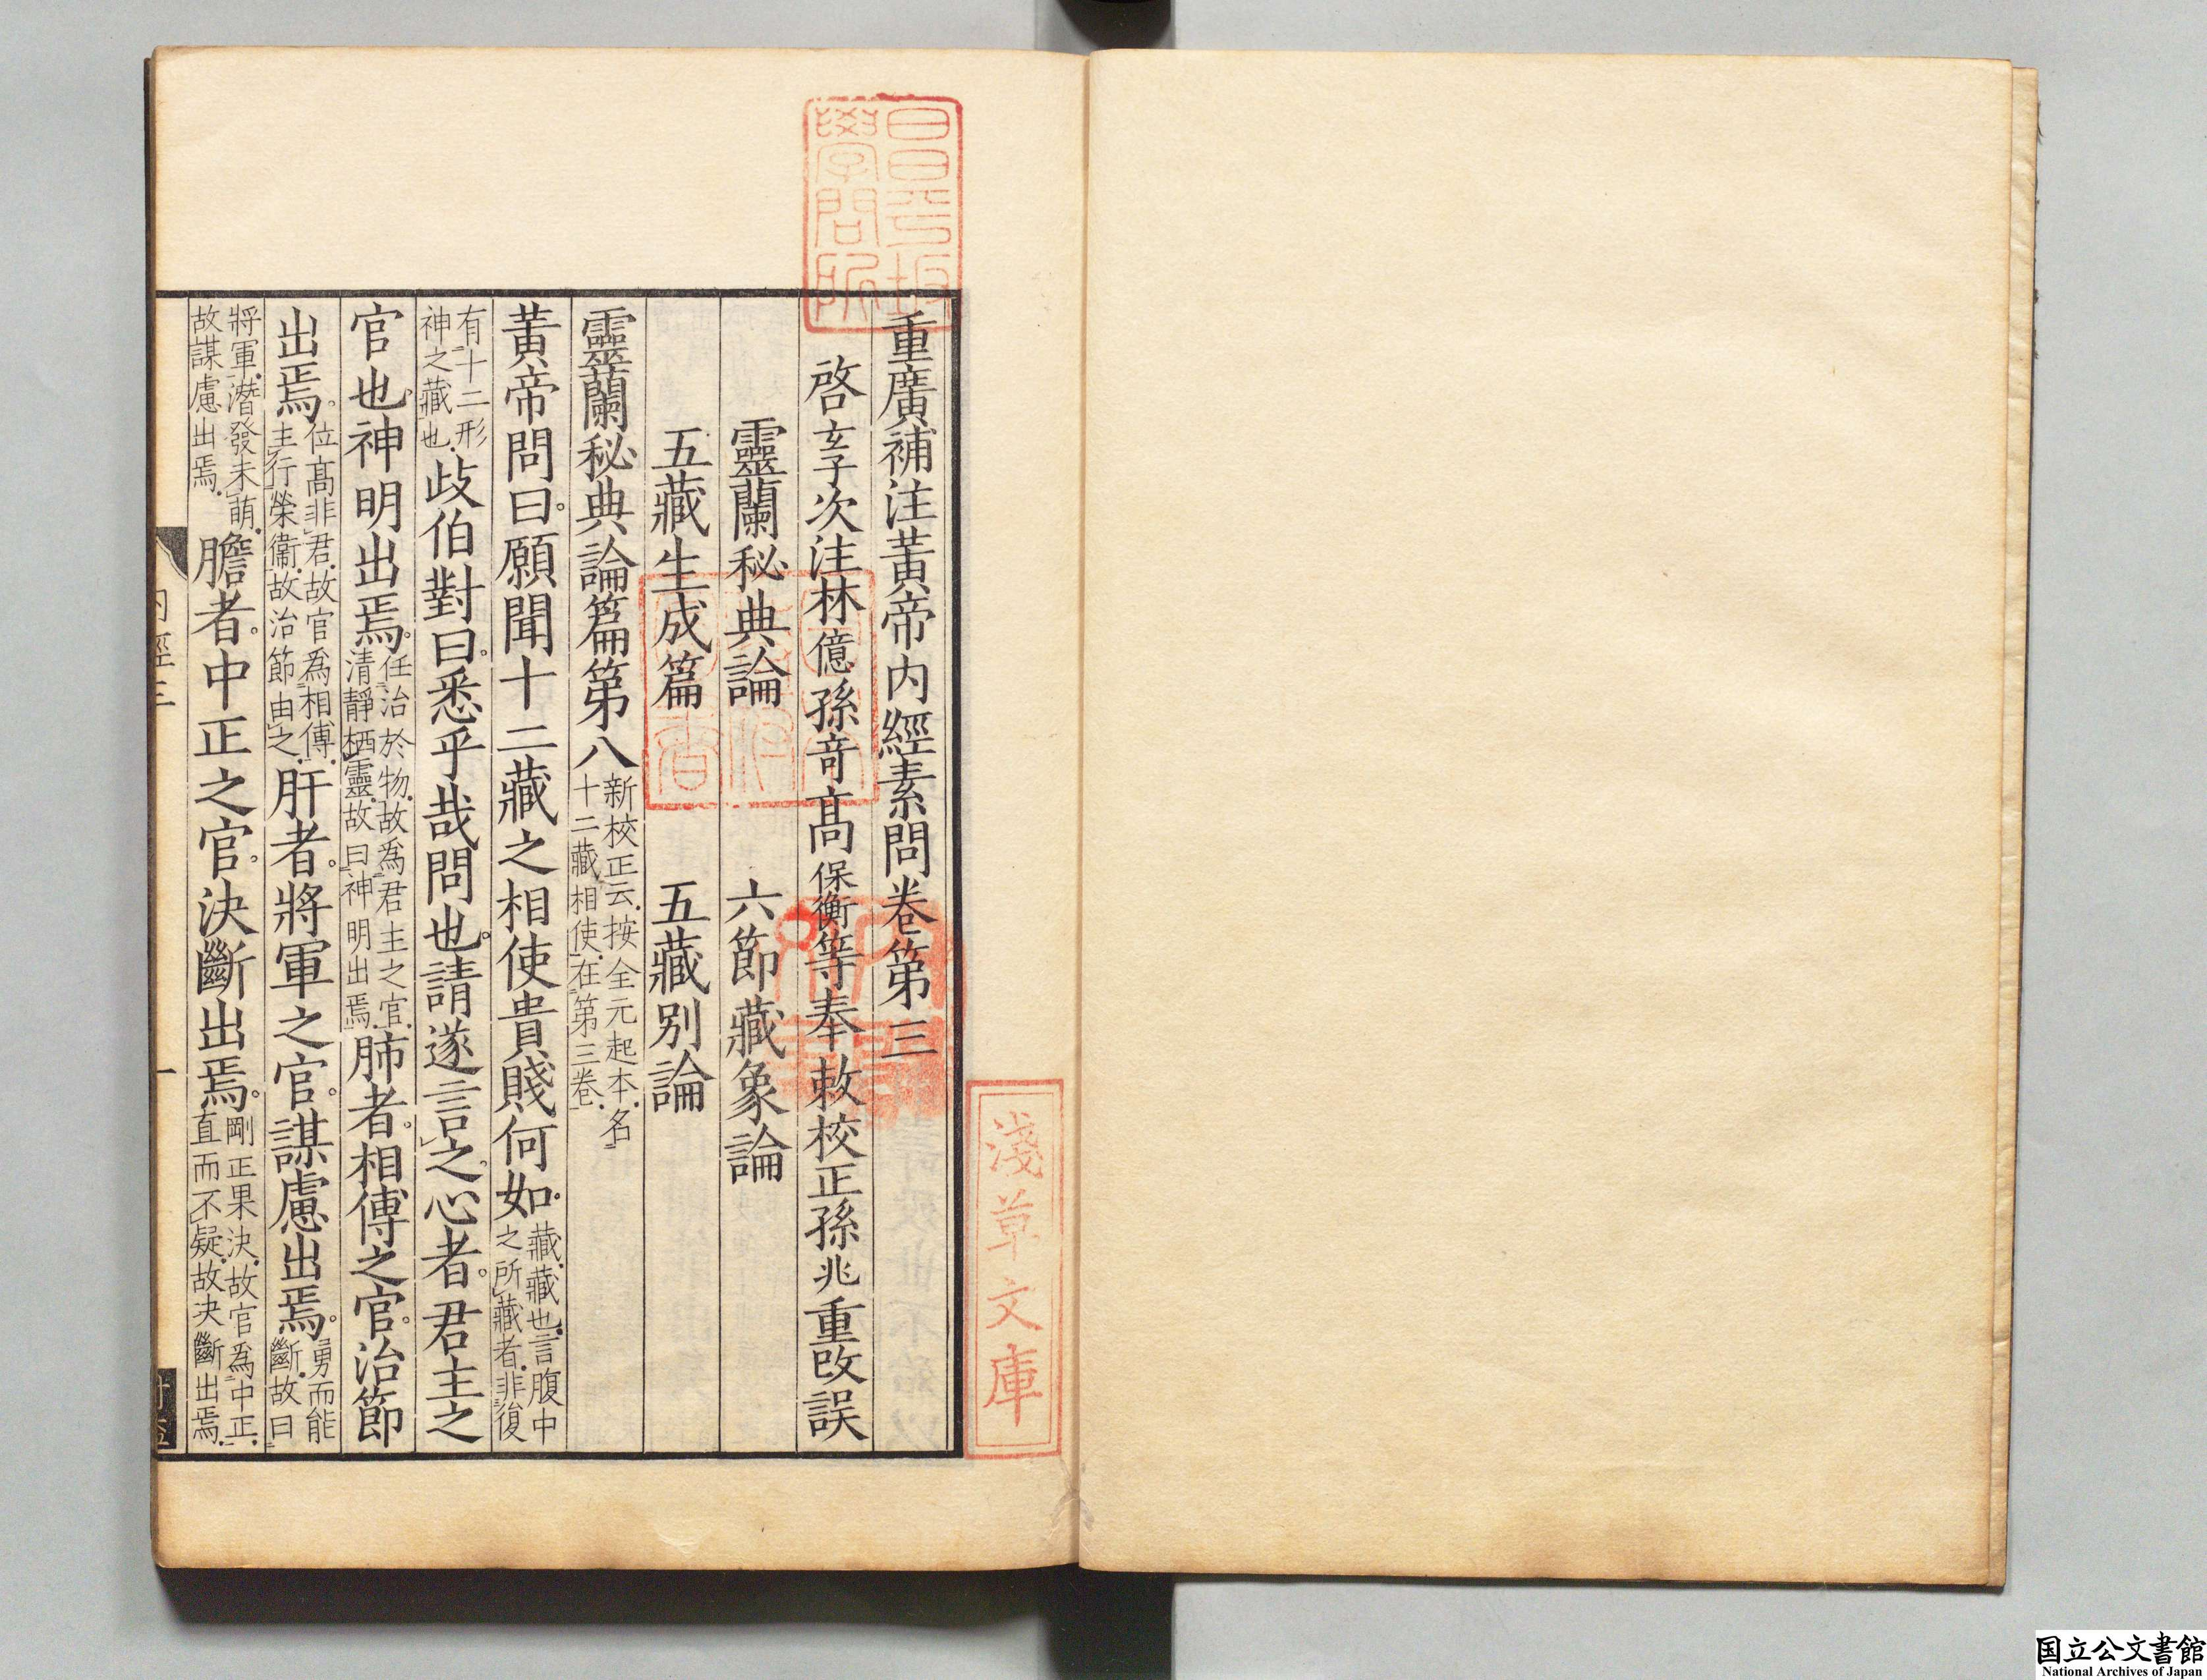 重廣補注黃帝内經素問卷第三
啓玄子次注林億孫竒髙保衡等奉敕校正孫兆重改誤
靈蘭秘典論 六節藏象論
五藏生成篇 五藏別論
靈蘭秘典論篇第八 新校正云按全元起本名
十二藏相使在第三卷
黃帝問曰願聞十二藏之相使貴賤何如 藏藏也言腹中
之所藏者非復
有十二形
神之藏也 歧伯對曰悉乎哉問也請遂言之心者君主之
官也神明出焉 任治於物故爲君主之官
清靜栖靈故曰神明出焉 肺者相傅之官治節
出焉 位髙非君故官爲相傅
主行榮衞故治節由之 肝者將軍之官謀慮出焉 勇而能
斷故曰
將軍潛發未萌
故謀慮出焉 膽者中正之官決斷出焉 剛正果決故官爲中正
直而不疑故決斷出焉
内經三
一
昌平坂
學問所
淺草文庫
国立公文書館
National Archives of Japan